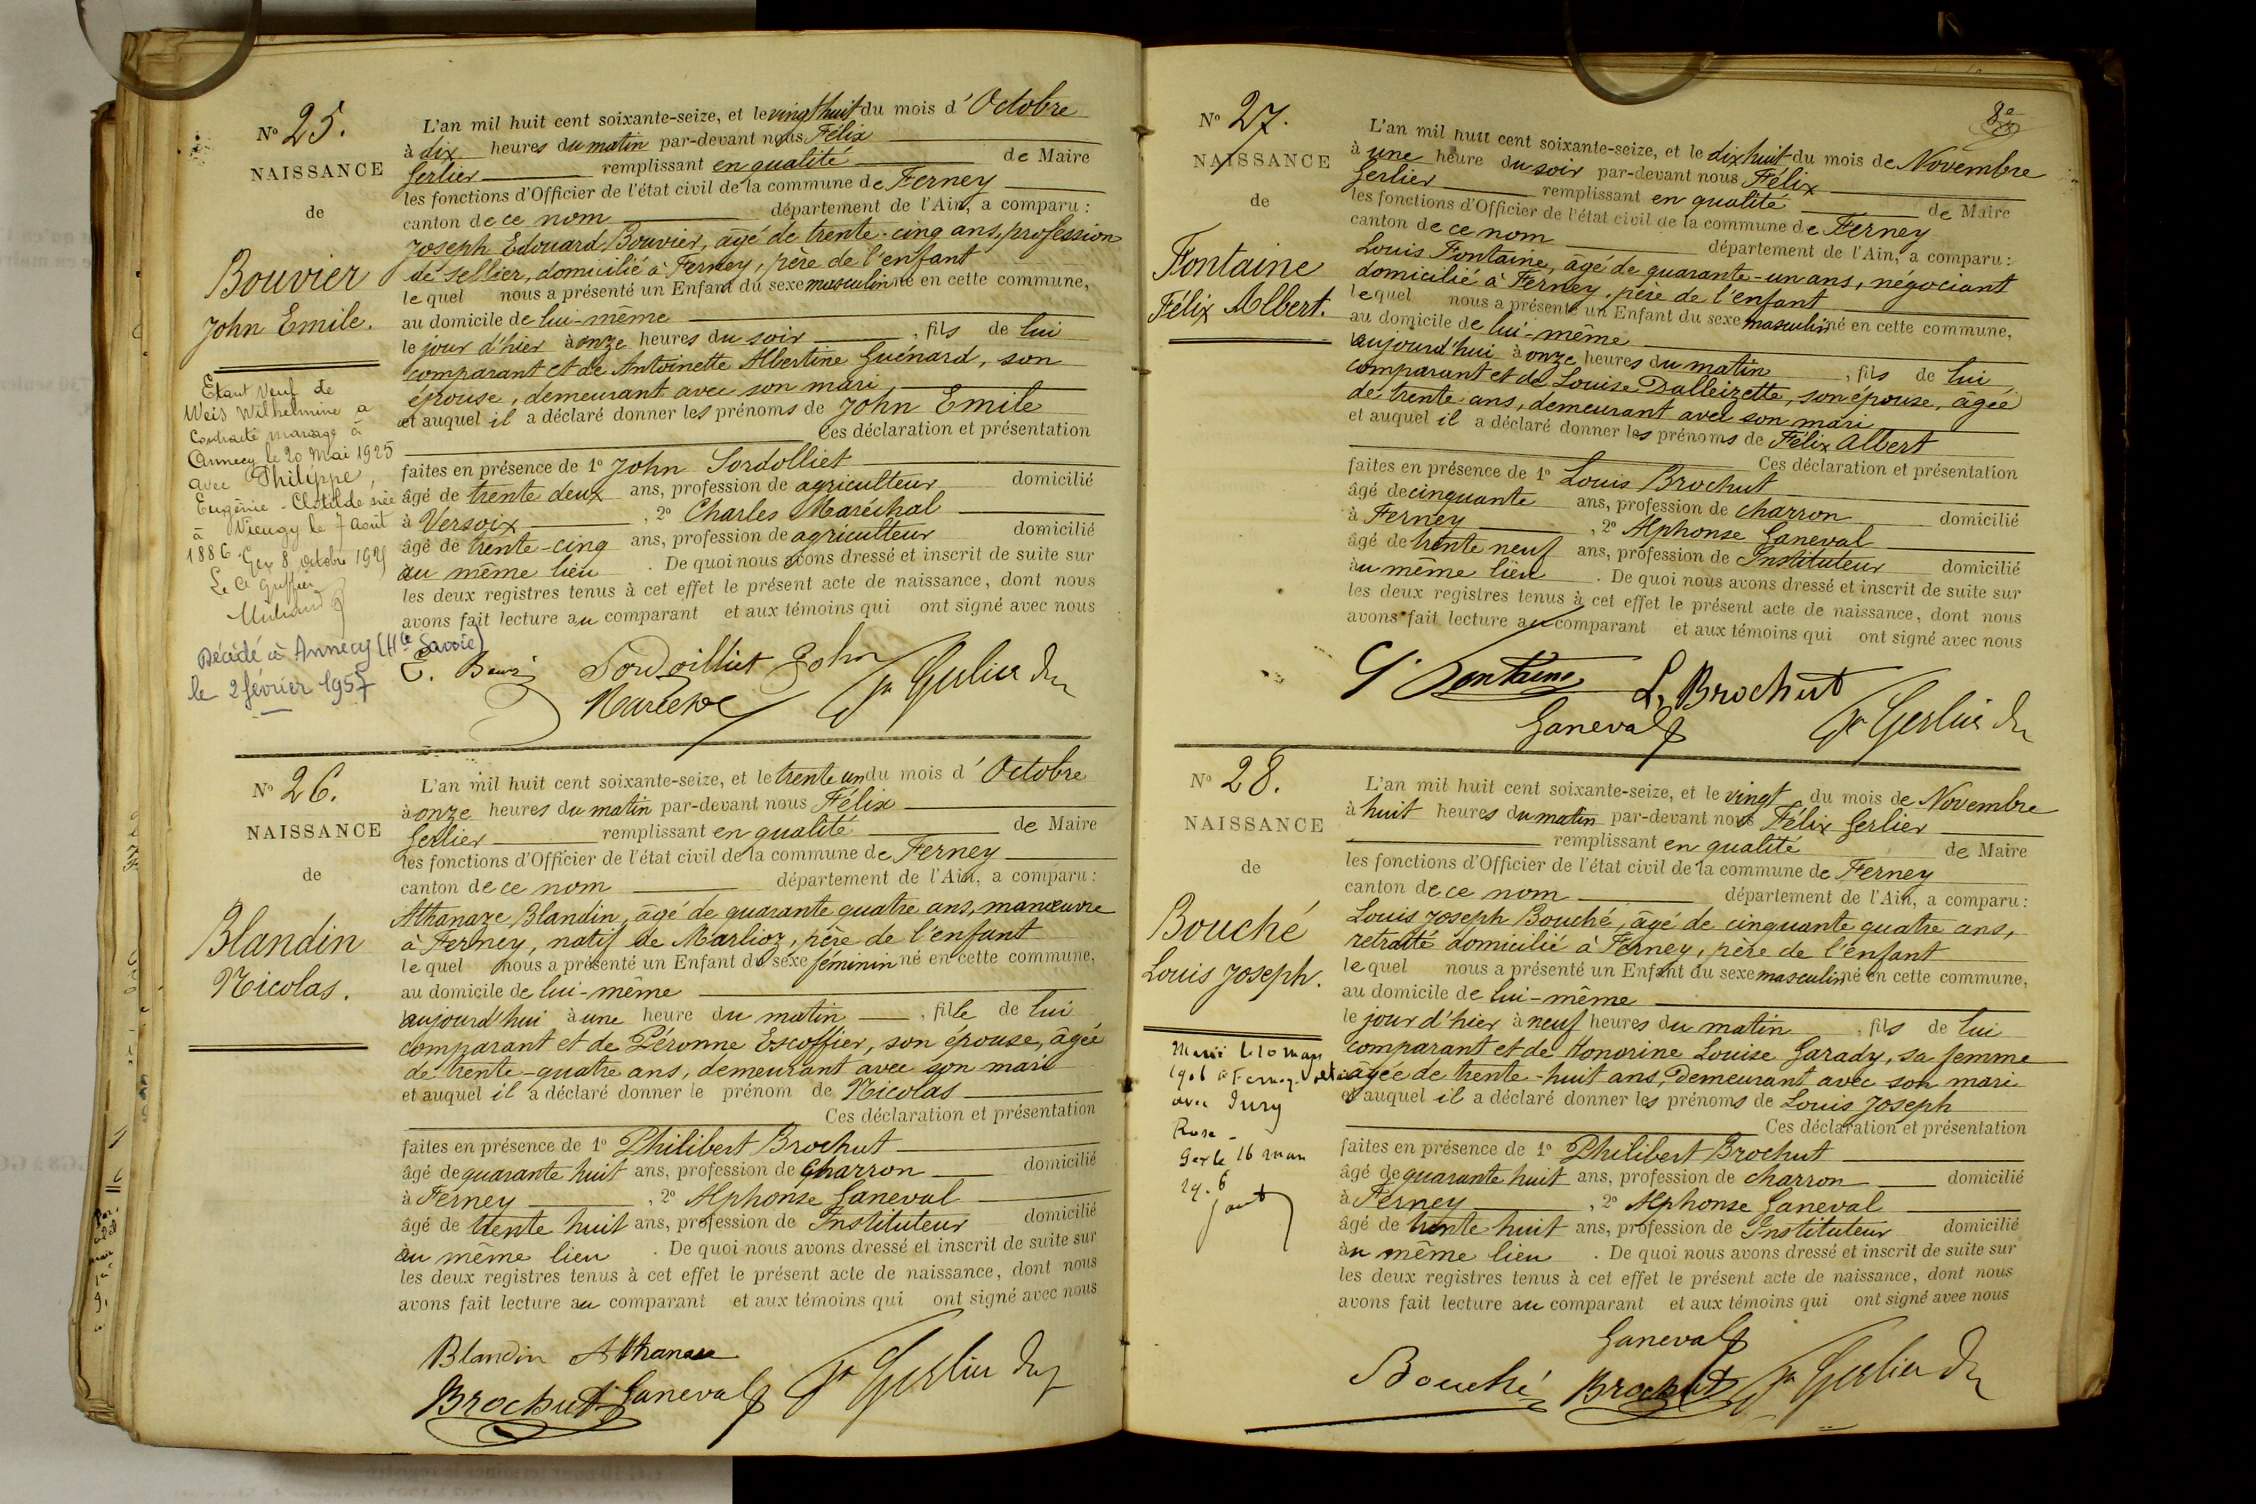 N° 25.
NAISSANCE
de
Bouvier
John Emile.
Etant veuf de
Weis Wilhelmine a
Contracté mariage à
Annecy le 20 Mai 1925
avec Philippe,
Eugénie - Clotilde née
à Vieugy le 7 Août
1886. Gex 8 octobre
Le Cis Greffier
Décédé à Annecy (Hte Savoie)
le 2 février 1957
L'an mil huit cent soixante-seize, et le vingt huit du mois d'Octobre
à dix heures du matin par-devant nous Félix
Gerlier remplissant en qualité de Maire
les fonctions d'Officier de l'état civil de la commune de Ferney
canton de ce nom département de l'Ain, a comparu :
Joseph Edouard Bouvier, âgé de trente-cinq ans, profession
de sellier, domicilié à Ferney, père de l'enfant
lequel nous a présenté un Enfant du sexe masculin né en cette commune,
au domicile de lui-même
le jour d'hier à onze heures du soir, fils de lui
comparant et de Antoinette Albertine Guénard, son
épouse, demeurant avec son mari,
et auquel il a déclaré donner les prénoms de John Emile
Ces déclaration et présentation
faites en présence de 1° John Sordolliet
âgé de trente deux ans, profession de agriculteur domicilié
à Versoix, 2° Charles Maréchal
âgé de trente-cinq ans, profession de agriculteur domicilié
au même lieu. De quoi nous avons dressé et inscrit de suite sur
les deux registres tenus à cet effet le présent acte de naissance, dont nous
avons fait lecture au comparant et aux témoins qui ont signé avec nous
Sordoilliet John
N° 26.
NAISSANCE
de
Blandin
Nicolas.
L'an mil huit cent soixante-seize, et le trente un du mois d'Octobre
à onze heures du matin par-devant nous Félix
Gerlier remplissant en qualité de Maire
les fonctions d'Officier de l'état civil de la commune de Ferney
canton de ce nom département de l'Ain, a comparu :
Athanaze Blandin, âgé de quarante quatre ans, manœuvre
à Ferney, natif de Marlioz, père de l'enfant
lequel nous a présenté un Enfant du sexe féminin né en cette commune,
au domicile de lui-même
aujourd'hui à une heure du matin, fille de lui
comparant et de Péronne Escoffier, son épouse, âgée
de trente-quatre ans, demeurant avec son mari
et auquel il a déclaré donner le prénom de Nicolas
Ces déclaration et présentation
faites en présence de 1° Philibert Brochut
âgé de quarante huit ans, profession de charron domicilié
à Ferney, 2° Alphonse Ganeval
âgé de trente huit ans, profession de Instituteur domicilié
au même lieu. De quoi nous avons dressé et inscrit de suite sur
les deux registres tenus à cet effet le présent acte de naissance, dont nous
avons fait lecture au comparant et aux témoins qui ont signé avec nous
Blandin Athanase
Brochut Ganeval
N° 27.
NAISSANCE
de
Fontaine
Félix Albert.
8e
L'an mil huit cent soixante-seize, et le dix huit du mois de Novembre
à une heure du soir par-devant nous Félix
Gerlier remplissant en qualité de Maire
les fonctions d'Officier de l'état civil de la commune de Ferney
canton de ce nom département de l'Ain, a comparu :
Louis Fontaine, âgé de quarante-un ans, négociant
domicilié à Ferney, père de l'enfant
lequel nous a présenté un Enfant du sexe masculin né en cette commune,
au domicile de lui-même
aujourd'hui à onze heures du matin, fils de lui
comparant et de Louise Dalleizette, son épouse, âgée
de trente ans, demeurant avec son mari
et auquel il a déclaré donner les prénoms de Félix Albert
Ces déclaration et présentation
faites en présence de 1° Louis Brochut
âgé de cinquante ans, profession de charron domicilié
à Ferney, 2° Alphonse Ganeval
âgé de trente neuf ans, profession de Instituteur domicilié
au même lieu. De quoi nous avons dressé et inscrit de suite sur
les deux registres tenus à cet effet le présent acte de naissance, dont nous
avons fait lecture au comparant et aux témoins qui ont signé avec nous
Fontaine L. Brochut
Ganeval
N° 28.
NAISSANCE
de
Bouché
Louis Joseph.
Marié le 10 mars
1906 à Ferney-Voltaire
avec Jury
Rose
Gex le 16 mars
L'an mil huit cent soixante-seize, et le vingt du mois de Novembre
à huit heures du matin par-devant nous Félix Gerlier
remplissant en qualité de Maire
les fonctions d'Officier de l'état civil de la commune de Ferney
canton de ce nom département de l'Ain, a comparu :
Louis Joseph Bouché, âgé de cinquante quatre ans,
retraité domicilié à Ferney, père de l'enfant
lequel nous a présenté un Enfant du sexe masculin né en cette commune,
au domicile de lui-même
le jour d'hier à neuf heures du matin, fils de lui
comparant et de Honorine Louise Garady, sa femme
âgée de trente-huit ans, Demeurant avec son mari
et auquel il a déclaré donner les prénoms de Louis Joseph
Ces déclaration et présentation
faites en présence de 1° Philibert Brochut
âgé de quarante huit ans, profession de charron domicilié
à Ferney, 2° Alphonse Ganeval
âgé de trente huit ans, profession de Instituteur domicilié
au même lieu. De quoi nous avons dressé et inscrit de suite sur
les deux registres tenus à cet effet le présent acte de naissance, dont nous
avons fait lecture au comparant et aux témoins qui ont signé avec nous
Ganeval
Bouché Brochut